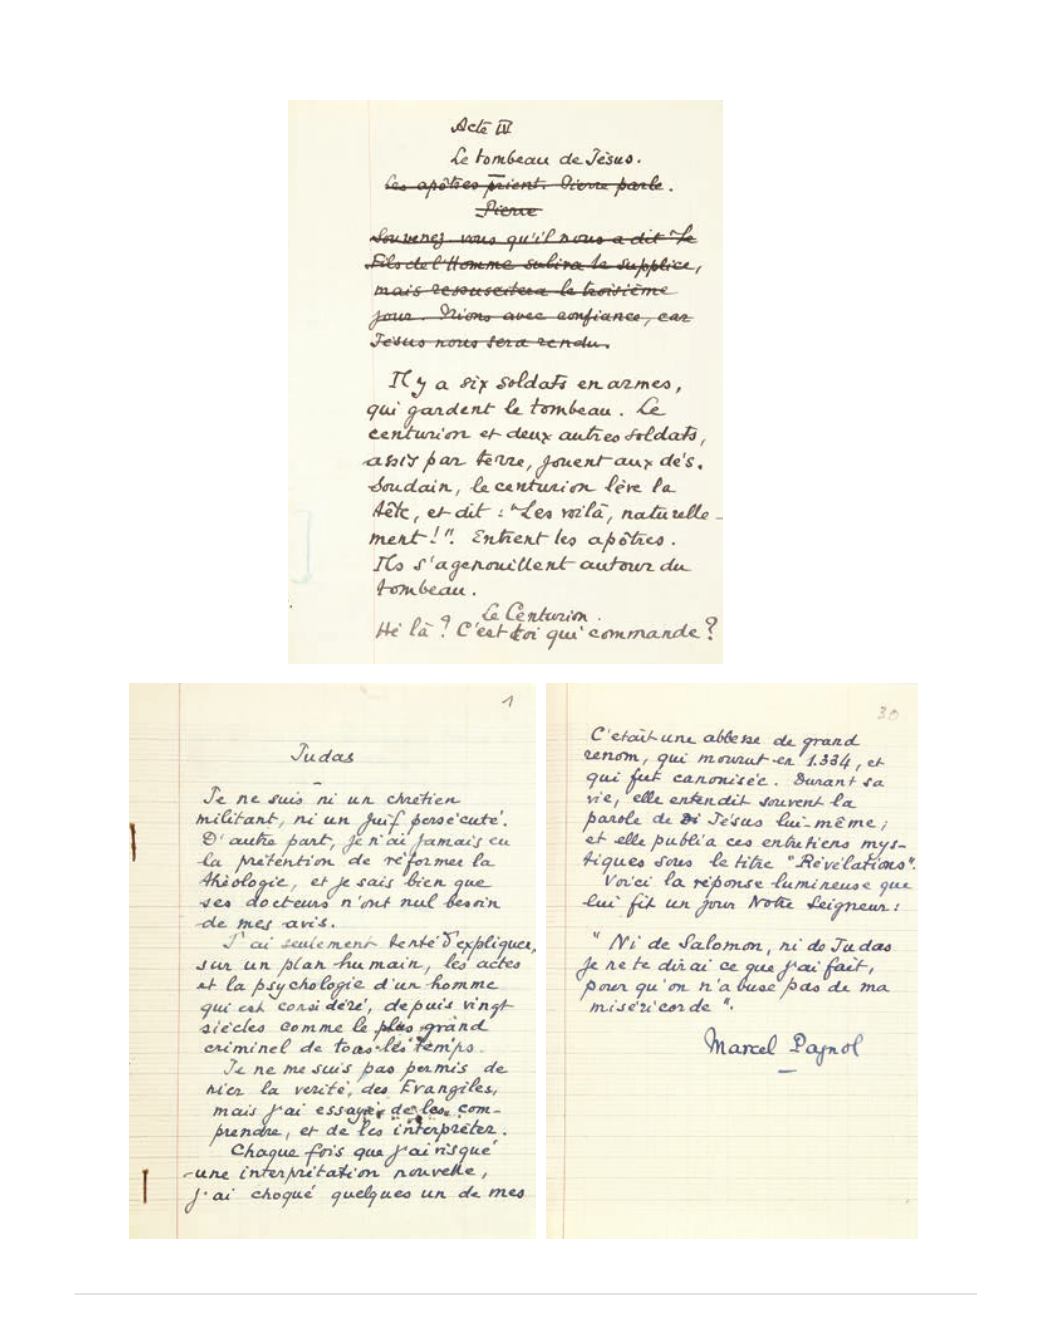 Acte IV
Le tombeau de Jésus.
Les apôtres prient. Pierre parle.
Pierre
Souvenez-vous qu'il nous a dit "le
Fils de l'Homme subira le supplice,
mais ressuscitera le troisième
jour. Prions avec confiance, car
Jésus nous sera rendu.
Il y a six soldats en armes,
qui gardent le tombeau. Le
centurion et deux autres soldats,
assis par terre, jouent aux dés.
Soudain, le centurion lève la
tête, et dit : "Les voilà, naturelle-
ment !". Entrent les apôtres.
Ils s'agenouillent autour du
tombeau.
Le Centurion.
Hé là ? C'est toi qui commande ?
1
Judas
Je ne suis ni un chrétien
militant, ni un Juif persécuté.
D'autre part, je n'ai jamais eu
la prétention de réformer la
théologie, et je sais bien que
ses docteurs n'ont nul besoin
de mes avis.
J'ai seulement tenté d'expliquer,
sur un plan humain, les actes
et la psychologie d'un homme
qui est considéré, depuis vingt
siècles comme le plus grand
criminel de tous les temps.
Je ne me suis pas permis de
nier la verité, des Evangiles,
mais j'ai essayé de les com-
prendre, et de les interpréter.
Chaque fois que j'ai risqué
une interprétation nouvelle,
j'ai choqué quelques un de mes
30
C'était une abbesse de grand
renom, qui mourut en 1.334, et
qui fut canonisée. Durant sa
vie, elle entendit souvent la
parole de Jésus lui-même ;
et elle publia ces entretiens mys-
tiques sous le titre "Révélations".
Voici la réponse lumineuse que
lui fit un jour Notre Seigneur :
"Ni de Salomon, ni de Judas
je ne te dirai ce que j'ai fait,
pour qu'on n'abuse pas de ma
miséricorde".
Marcel Pagnol